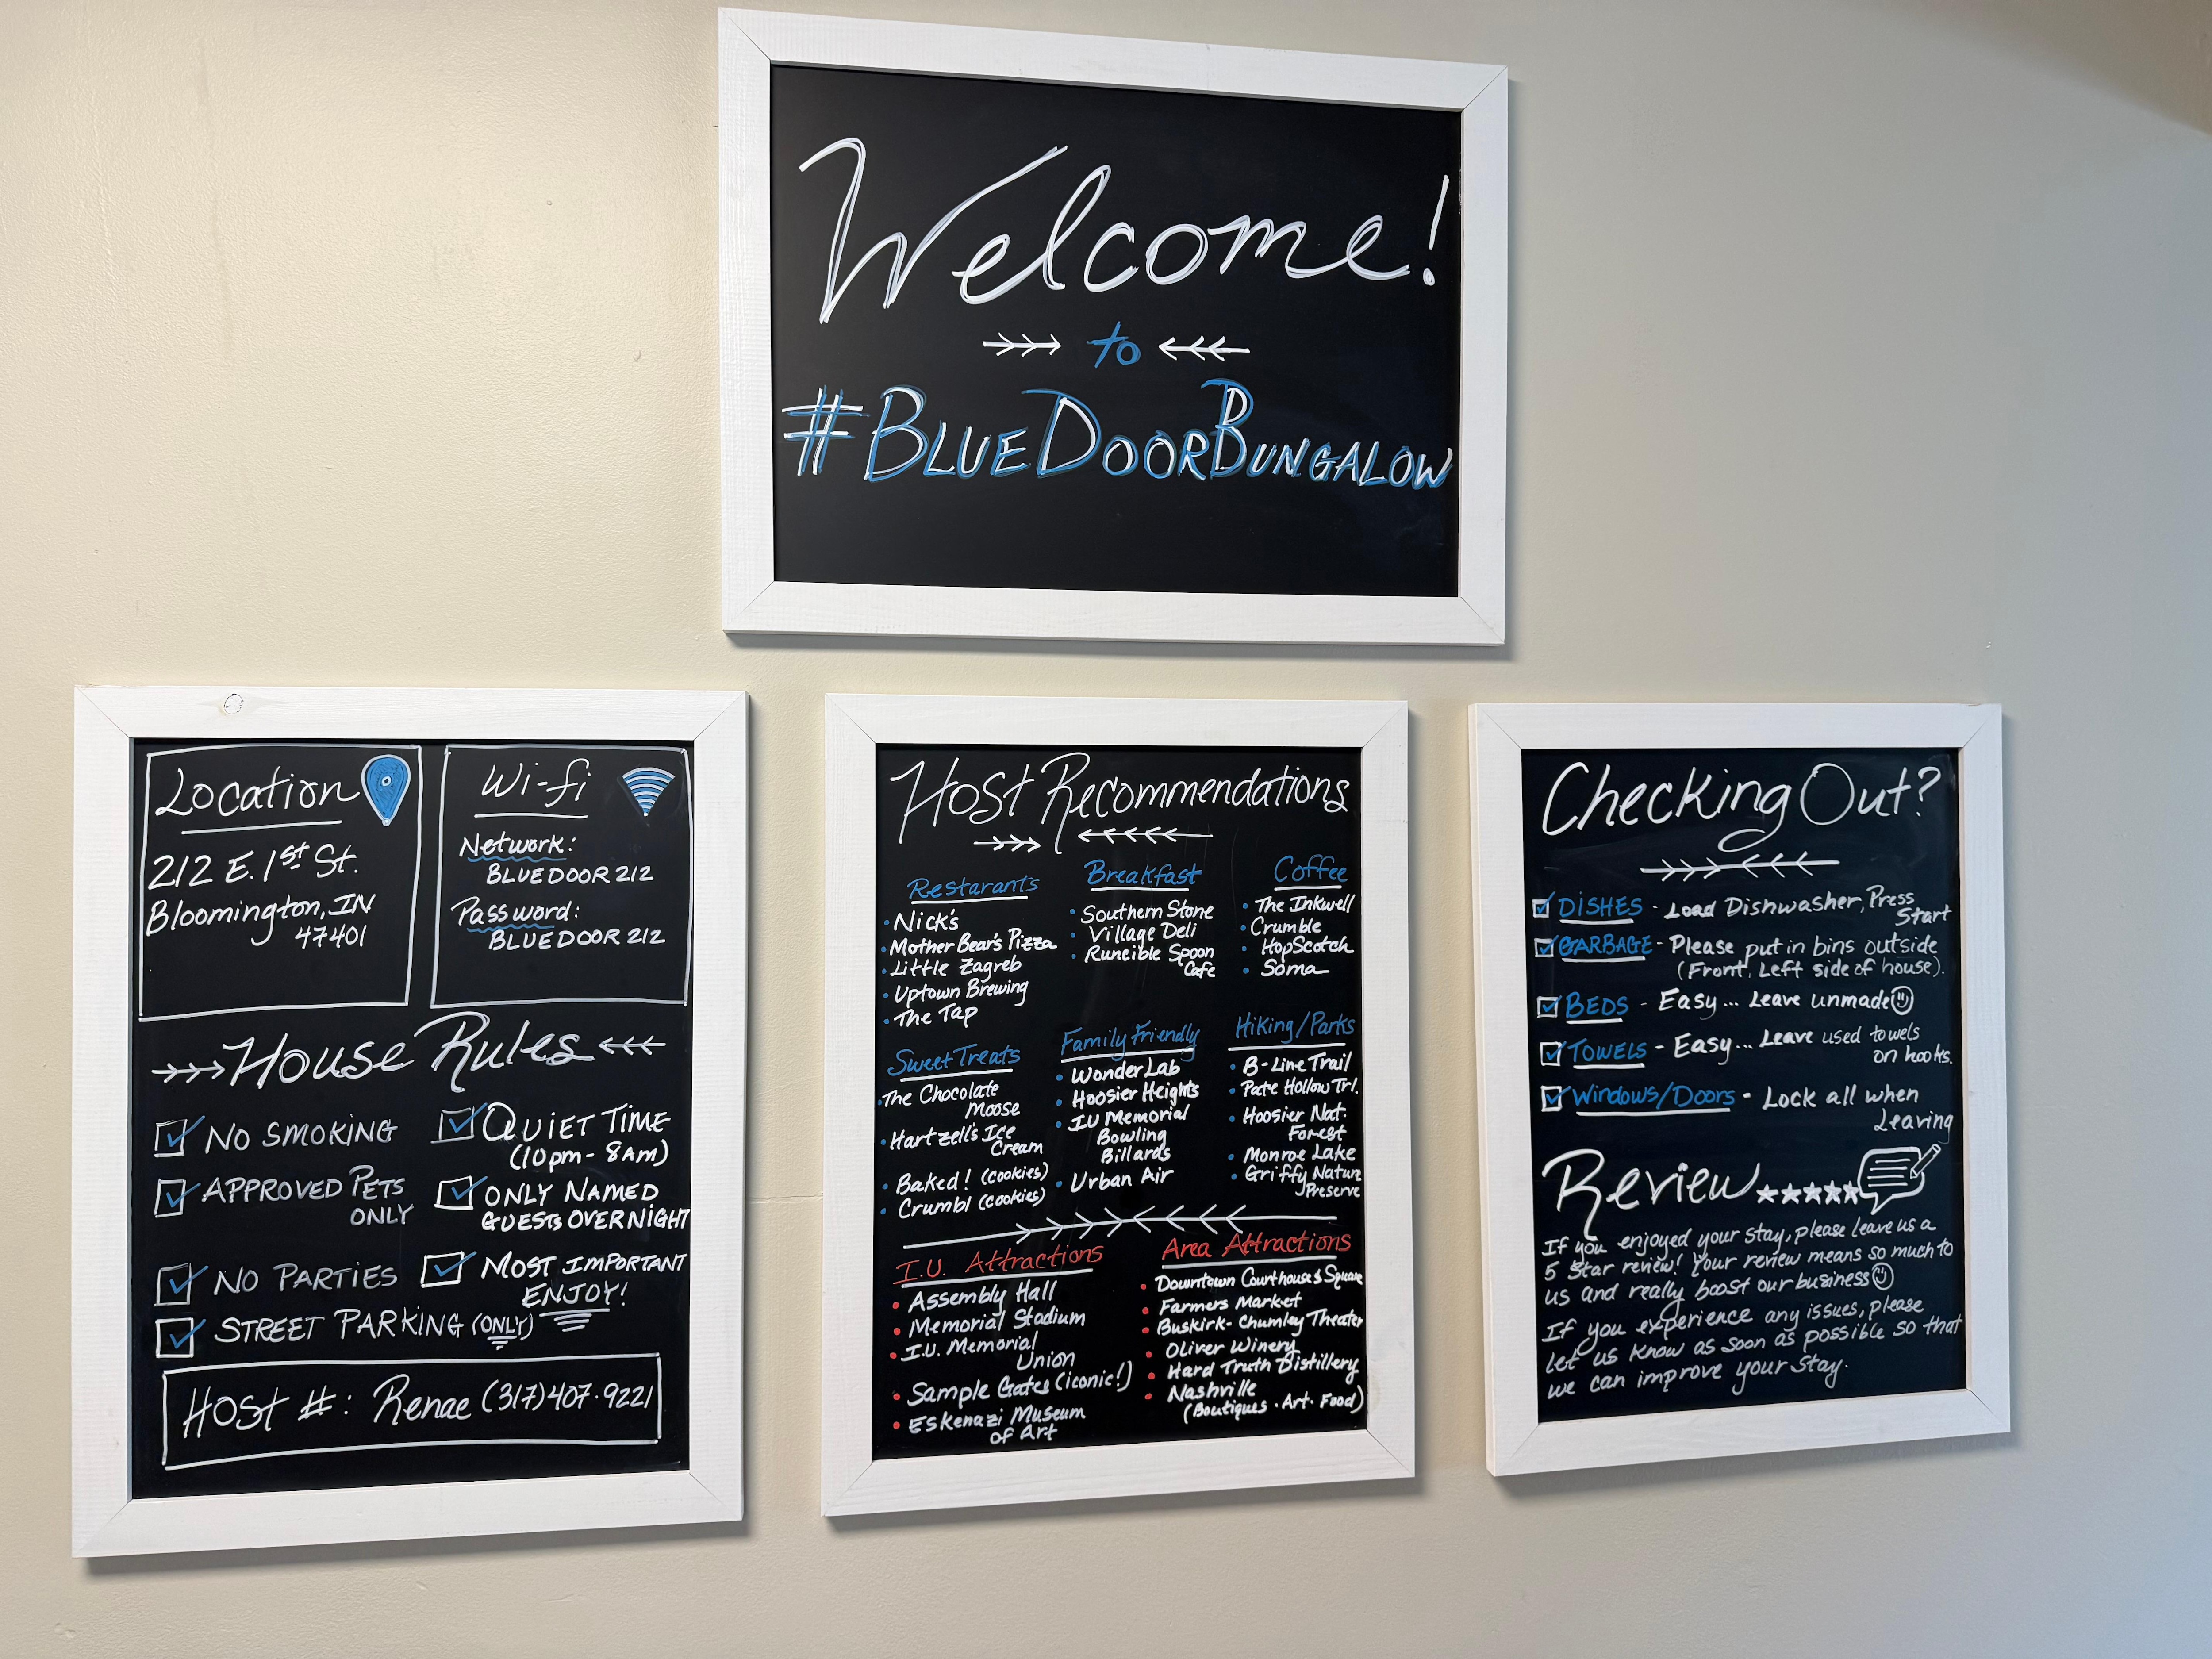 Welcome!
to
#BLUEDOORBUNGALOW
Location
212 E. 1st St.
Bloomington, IN
47401
Wi-fi
Network:
BLUEDOOR212
Password:
BLUEDOOR212
HOUSE RULES
NO SMOKING
APPROVED PETS
ONLY
NO PARTIES
STREET PARKING (ONLY)
QUIET TIME
(10pm - 8AM)
ONLY NAMED
GUESTS OVERNIGHT
MOST IMPORTANT
ENJOY!
HOST #: Renae (317)407.9221
HOST RECOMMENDATIONS
Restarants
• Nick's
• Mother Bear's Pizza
• Little Zagreb
• Uptown Brewing
• The Tap
Breakfast
• Southern Stone
• Village Deli
• Runcible Spoon
Cafe
Coffee
• The Inkwell
• Crumble
• HopScotch
• Soma
Sweet Treats
• The Chocolate
Moose
• Hartzell's Ice
Cream
• Baked! (cookies)
• Crumbl (cookies)
Family Friendly
• WonderLab
• Hoosier Heights
• IU Memorial
Bowling
Billards
• Urban Air
Hiking/Parks
• B-Line Trail
• Pate Hollow Trl.
• Hoosier Nat.
Forest
• Monroe Lake
• Griffy Nature
Preserve
I.U. Attractions
• Assembly Hall
• Memorial Stadium
• I.U. Memorial
Union
• Sample Gates (iconic!)
• Eskenazi Museum
of Art
Area Attractions
• Downtown Courthouse & Square
• Farmers Market
• Buskirk-Chumley Theater
• Oliver Winery
• Hard Truth Distillery
• Nashville
(Boutiques · Art · Food)
Checking Out?
DISHES - Load Dishwasher, Press
Start
GARBAGE - Please put in bins outside
(Front, Left side of house).
BEDS - Easy... Leave unmade
TOWELS - Easy... Leave used towels
on hooks.
WINDOWS/DOORS - Lock all when
Leaving
Review
If you enjoyed your stay, please leave us a
5 Star review! Your review means so much to
us and really boost our business
If you experience any issues, please
let us know as soon as possible so that
we can improve your stay.